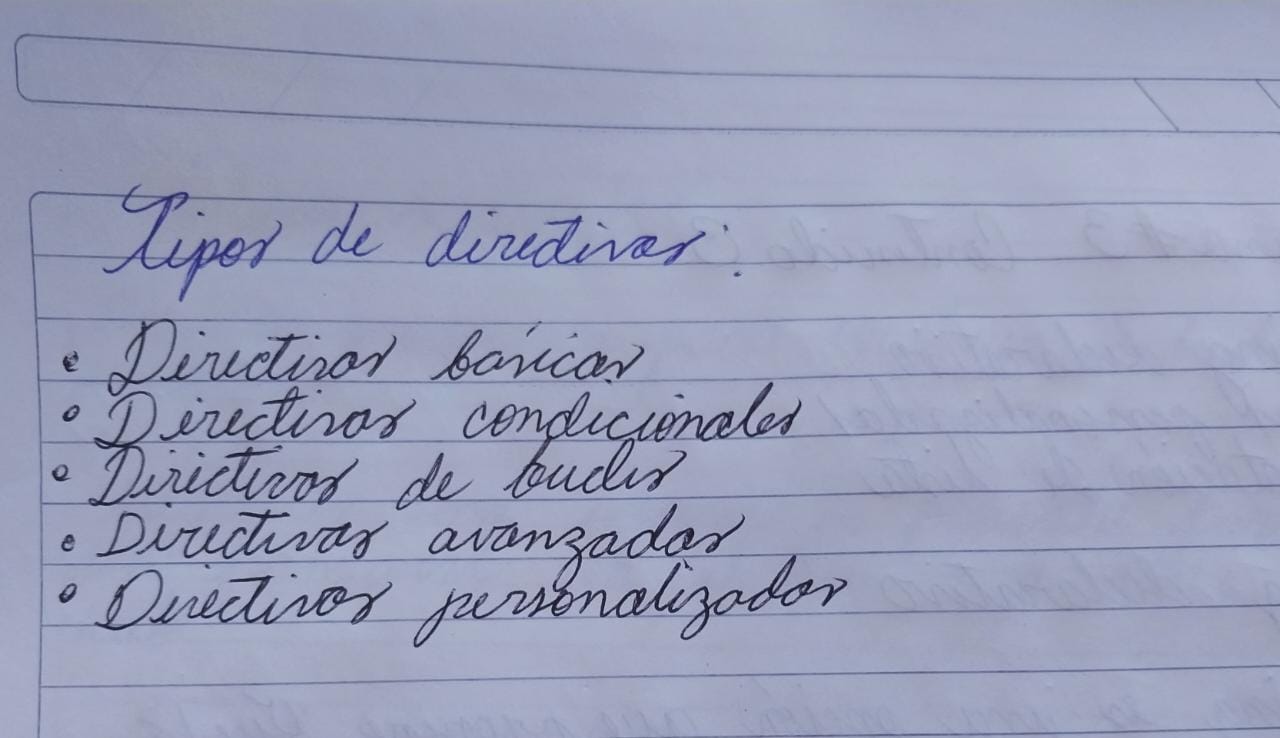 Tipos de directivas:
• Directivas básicas
• Directivas condicionales
• Directivas de bucles
• Directivas avanzadas
• Directivas personalizadas